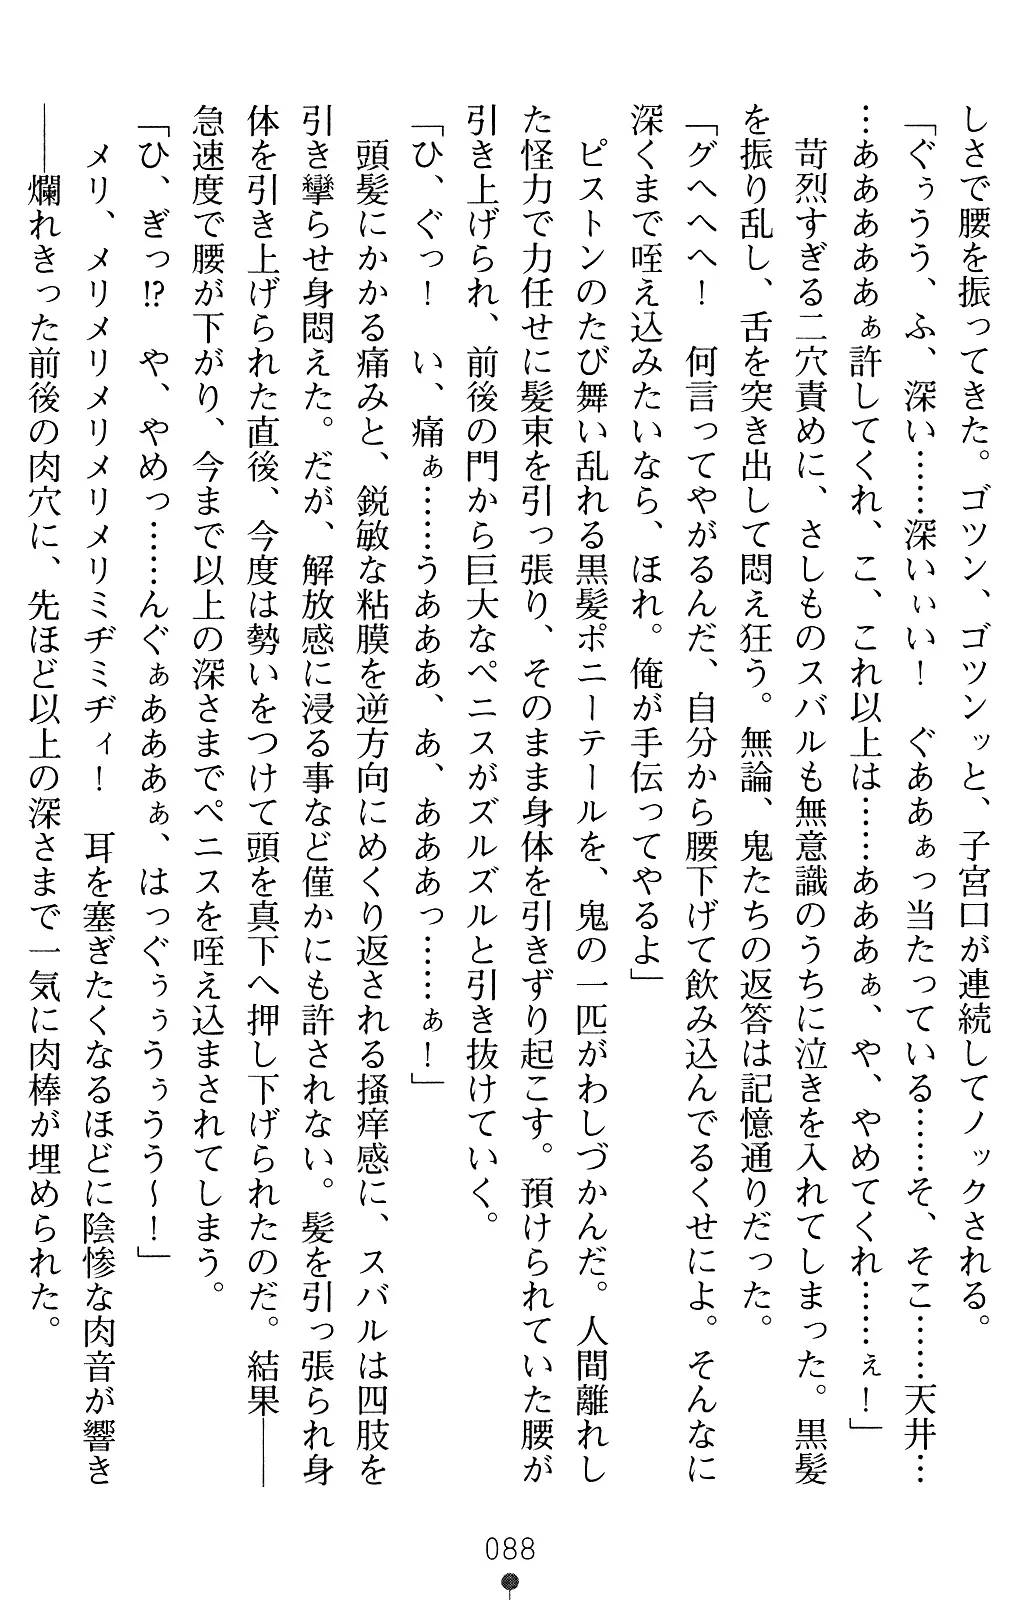 しさで腰を振ってきた。ゴツン、ゴツンッと、子宮口が連続してノックされる。
「ぐぅうう、ふ、深い……深いぃい！　ぐああぁっ当たっている……そ、そこ……天井…
…あああああぁ許してくれ、こ、これ以上は……あああぁ、や、やめてくれ……ぇ！」
　苛烈すぎる二穴責めに、さしものスバルも無意識のうちに泣きを入れてしまった。黒髪
を振り乱し、舌を突き出して悶え狂う。無論、鬼たちの返答は記憶通りだった。
「グヘヘヘ！　何言ってやがるんだ、自分から腰下げて飲み込んでるくせによ。そんなに
深くまで咥え込みたいなら、ほれ。俺が手伝ってやるよ」
　ピストンのたび舞い乱れる黒髪ポニーテールを、鬼の一匹がわしづかんだ。人間離れし
た怪力で力任せに髪束を引っ張り、そのまま身体を引きずり起こす。預けられていた腰が
引き上げられ、前後の門から巨大なペニスがズルズルと引き抜けていく。
「ひ、ぐっ！　い、痛ぁ……うあああ、あ、あああっ……ぁ！」
　頭髪にかかる痛みと、鋭敏な粘膜を逆方向にめくり返される掻痒感に、スバルは四肢を
引き攣らせ身悶えた。だが、解放感に浸る事など僅かにも許されない。髪を引っ張られ身
体を引き上げられた直後、今度は勢いをつけて頭を真下へ押し下げられたのだ。結果――
急速度で腰が下がり、今まで以上の深さまでペニスを咥え込まされてしまう。
「ひ、ぎっ!?　や、やめっ……んぐぁあああぁ、はっぐぅぅうぅうう～！」
　メリ、メリメリメリメリメリミヂミヂィ！　耳を塞ぎたくなるほどに陰惨な肉音が響き
――爛れきった前後の肉穴に、先ほど以上の深さまで一気に肉棒が埋められた。
088